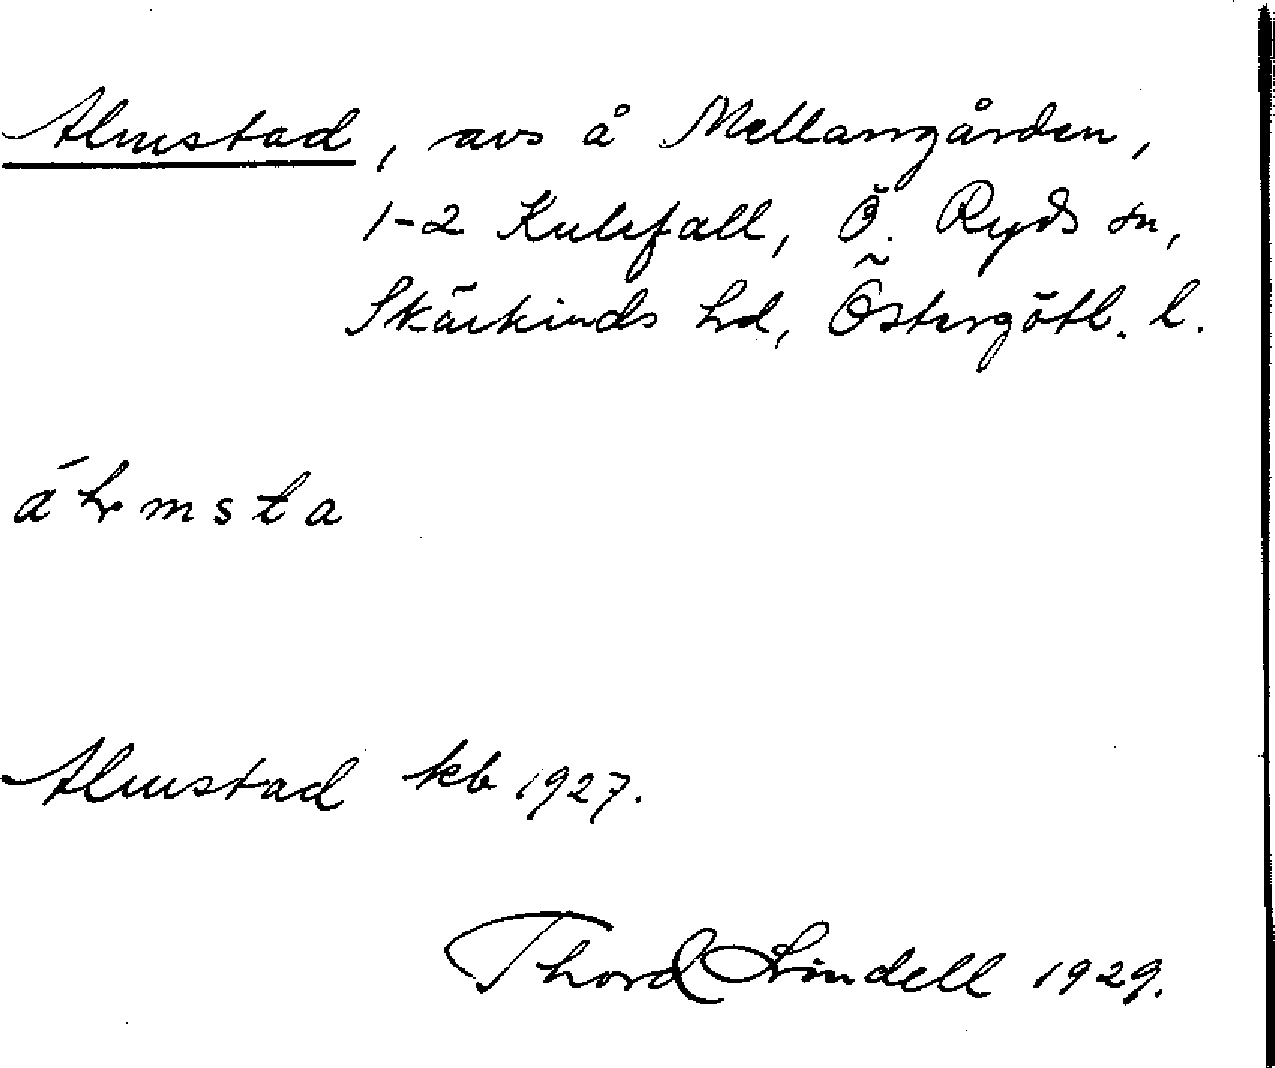 Almstad, avs å Mellangården,
1-2 Kulefall, Ö. Ryds sn,
Skärkinds hd, Östergötl. l.
msta
Almstad kb 1927.
Thord Lindell 1929.